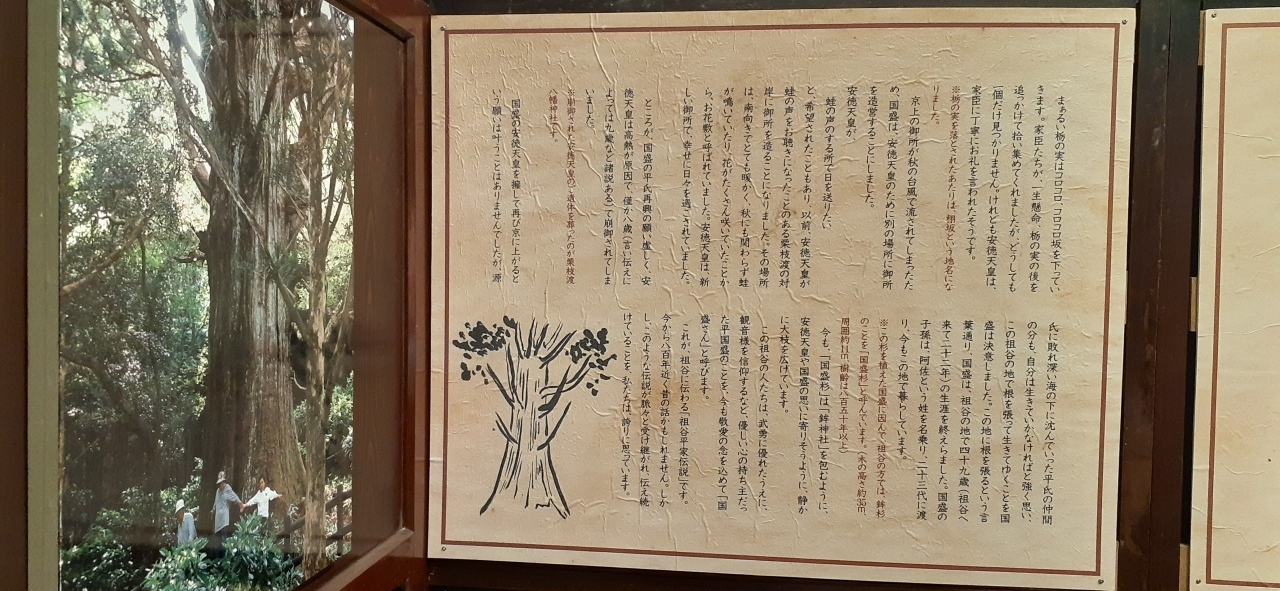 まぁるい栃の実はコロコロ、コロコロ坂を下ってい
きます。家臣たちが、一生懸命、栃の実の後を
追っかけて拾い集めてくれましたが、どうしても
一個だけ見つかりません。けれども安徳天皇は、
家臣に丁寧にお礼を言われたそうです。
※栃の実を落とされたあたりは「栩坂」という地名にな
りました。
京上の御所が秋の台風で流されてしまったた
め、国盛は、安徳天皇のために別の場所に御所
を造営することにしました。
安徳天皇が
蛙の声のする所で日を送りたい
と、希望されたこともあり、以前、安徳天皇が
蛙の声をお聴きになったことのある栗枝渡の対
岸に御所を造ることになりました。その場所
は、南向きでとても暖かく、秋にも関わらず蛙
が鳴いていたり、花がたくさん咲いていたことか
ら、お花敷と呼ばれていました。安徳天皇は、新
しい御所で、幸せに日々を過ごされていました。
ところが、国盛の平氏再興の願い虚しく、安
徳天皇は高熱が原因で、僅か八歳（言い伝えに
よっては九歳など諸説ある）で崩御されてしま
いました。
※崩御された安徳天皇のご遺体を葬ったのが栗枝渡
八幡神社です。
国盛の安徳天皇を擁して再び京に上がると
いう願いは叶うことはありませんでしたが、源
氏に敗れ深い海の下に沈んでいった平氏の仲間
の分も、自分は生きていかなければと強く思い、
この祖谷の地で根を張って生きてゆくことを国
盛は決意しました。この地に根を張るという言
葉通り、国盛は、祖谷の地で四十九歳（祖谷へ
来て二十二年）の生涯を終えらました。国盛の
子孫は、阿佐という姓を名乗り、二十三代に渡
り、今もこの地で暮らしています。
※この杉を植えた国盛に因んで、祖谷の方では、鉾杉
のことを「国盛杉」と呼んでいます。（木の高さ約35m、
周囲約11m、樹齢は八百五十年以上）
今も、「国盛杉」は「鉾神社」を包むように、
安徳天皇や国盛の思いに寄りそうように、静か
に大枝を広げています。
この祖谷の人たちは、武勇に優れたうえに、
観音様を信仰するなど、優しい心の持ち主だっ
た平国盛のことを、今も敬愛の念を込めて「国
盛さん」と呼びます。
これが、祖谷に伝わる「祖谷平家伝説」です。
今から八百年近く昔の話かもしれません。しか
し、このような伝説が脈々と受け継がれ、伝え続
けていることを、私たちは、誇りに思っています。